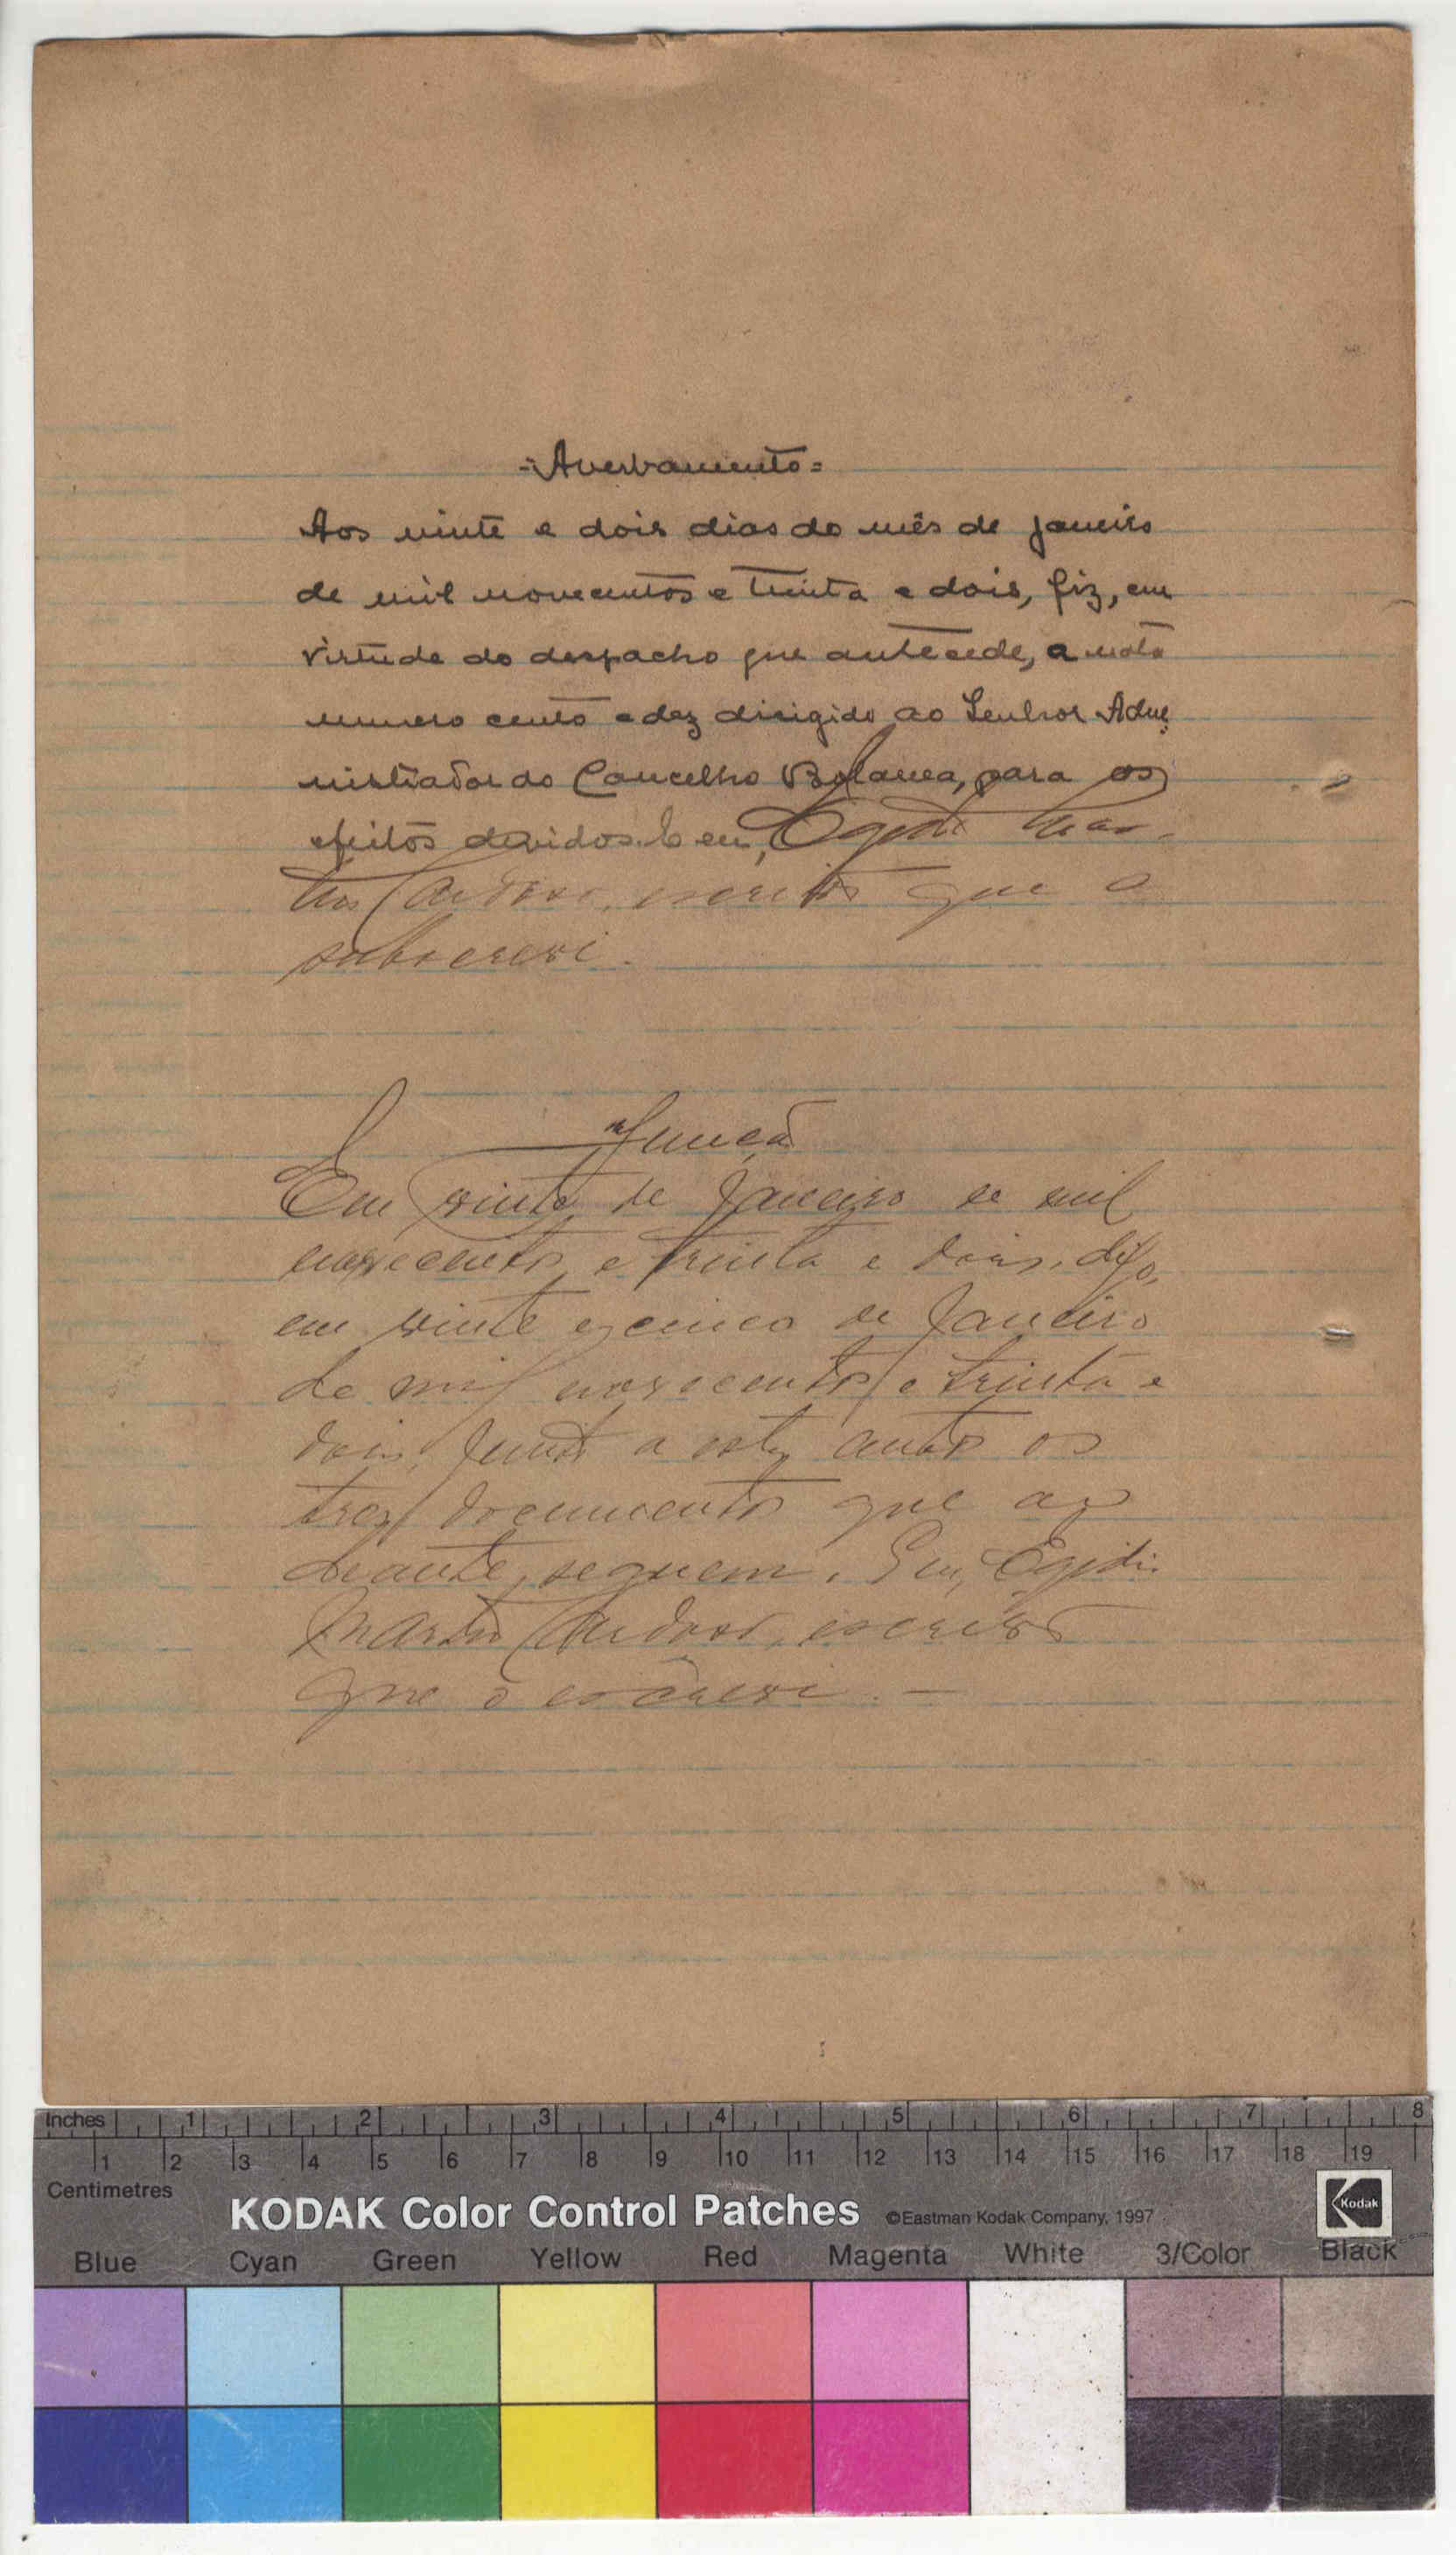 =Averbamento=
Aos vinte e dois dias do mês de janeiro
de mil novecentos e trinta e dois, fiz, em
virtude do despacho que antecede, a nota
numero cento e dez dirigido ao Senhor Admi
nistrador do Concelho Bolama, para os
efeitos devidos. E eu, Egidio Mar-
tins Cardoso, escrivão que o
subscrevi.
Junção
Em vinte de Janeiro de mil
novecentos e trinta e dois, digo,
em vinte e cinco de Janeiro
de mil novecentos e trinta e
dois, junto a estes autos os
tres documentos que ao
deante seguem. Eu, Egidio
Martins Cardoso, escrivão
que o escrevi. —
Inches 1 2 3 4 5 6 7 8
1 2 3 4 5 6 7 8 9 10 11 12 13 14 15 16 17 18 19
Centimetres
KODAK Color Control Patches ©Eastman Kodak Company, 1997 Kodak
Blue Cyan Green Yellow Red Magenta White 3/Color Black